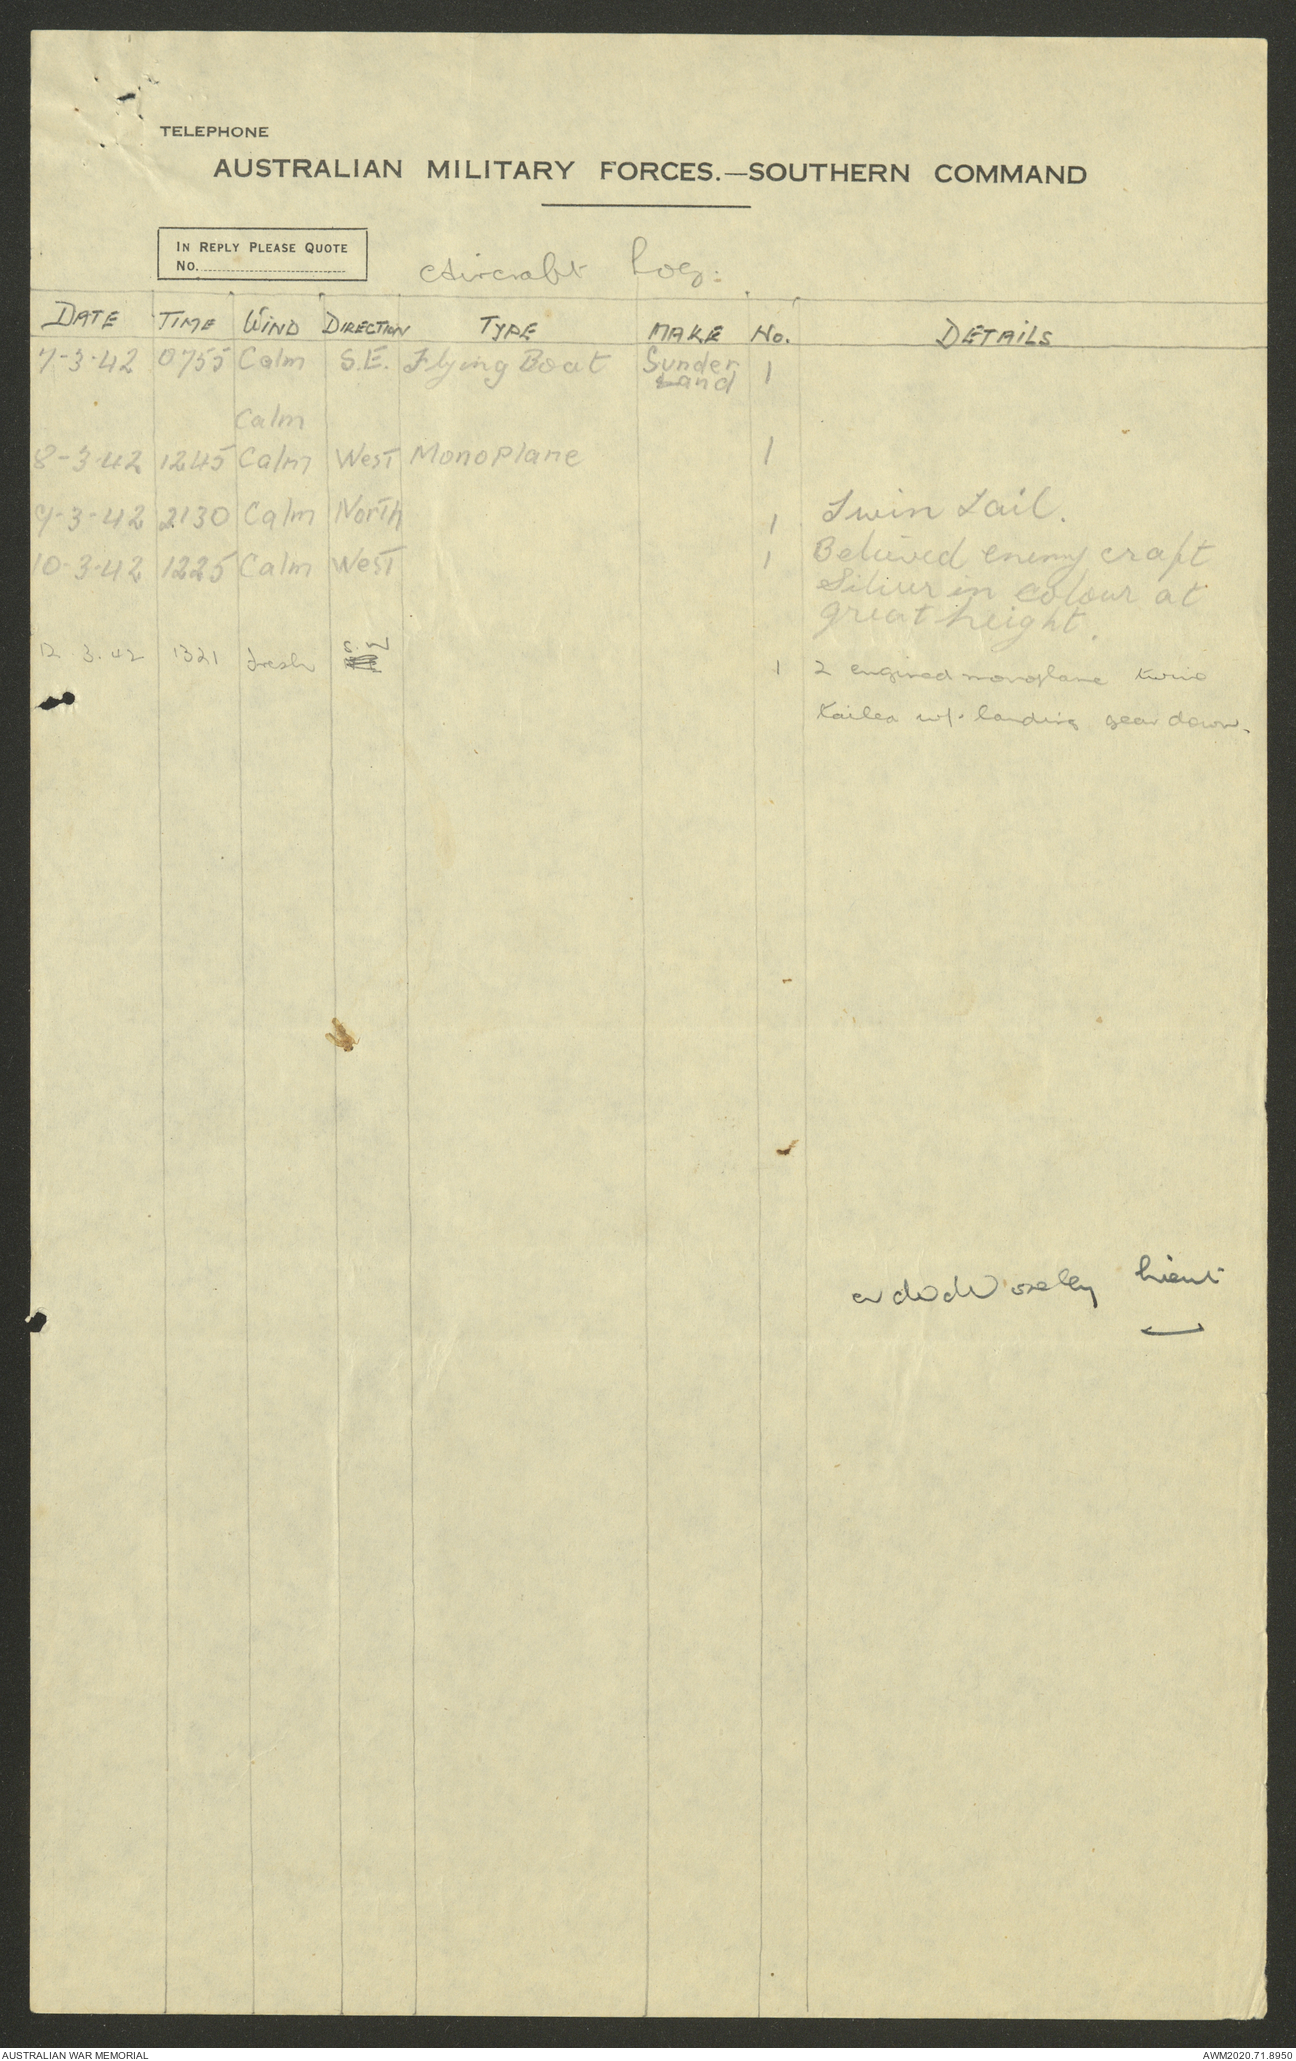 TELEPHONE
AUSTRALIAN MILITARY FORCES.—SOUTHERN COMMAND
IN REPLY PLEASE QUOTE
No.
Aircraft Log:
DATE TIME WIND DIRECTION TYPE MAKE No. DETAILS
7-3-42 0755 Calm S.E. Flying Boat Sunder 1
Land
Calm
8-3-42 1245 Calm West Monoplane 1
9-3-42 2130 Calm North 1 Twin Tail.
10-3-42 1225 Calm West 1 Believed enemy craft
Silver in colour at
great height.
12.3.42 1321 fresh S.W 1 2 engined monoplane twin
tailed landing gear down.
Lieut
AUSTRALIAN WAR MEMORIAL
AWM2020.71.8950